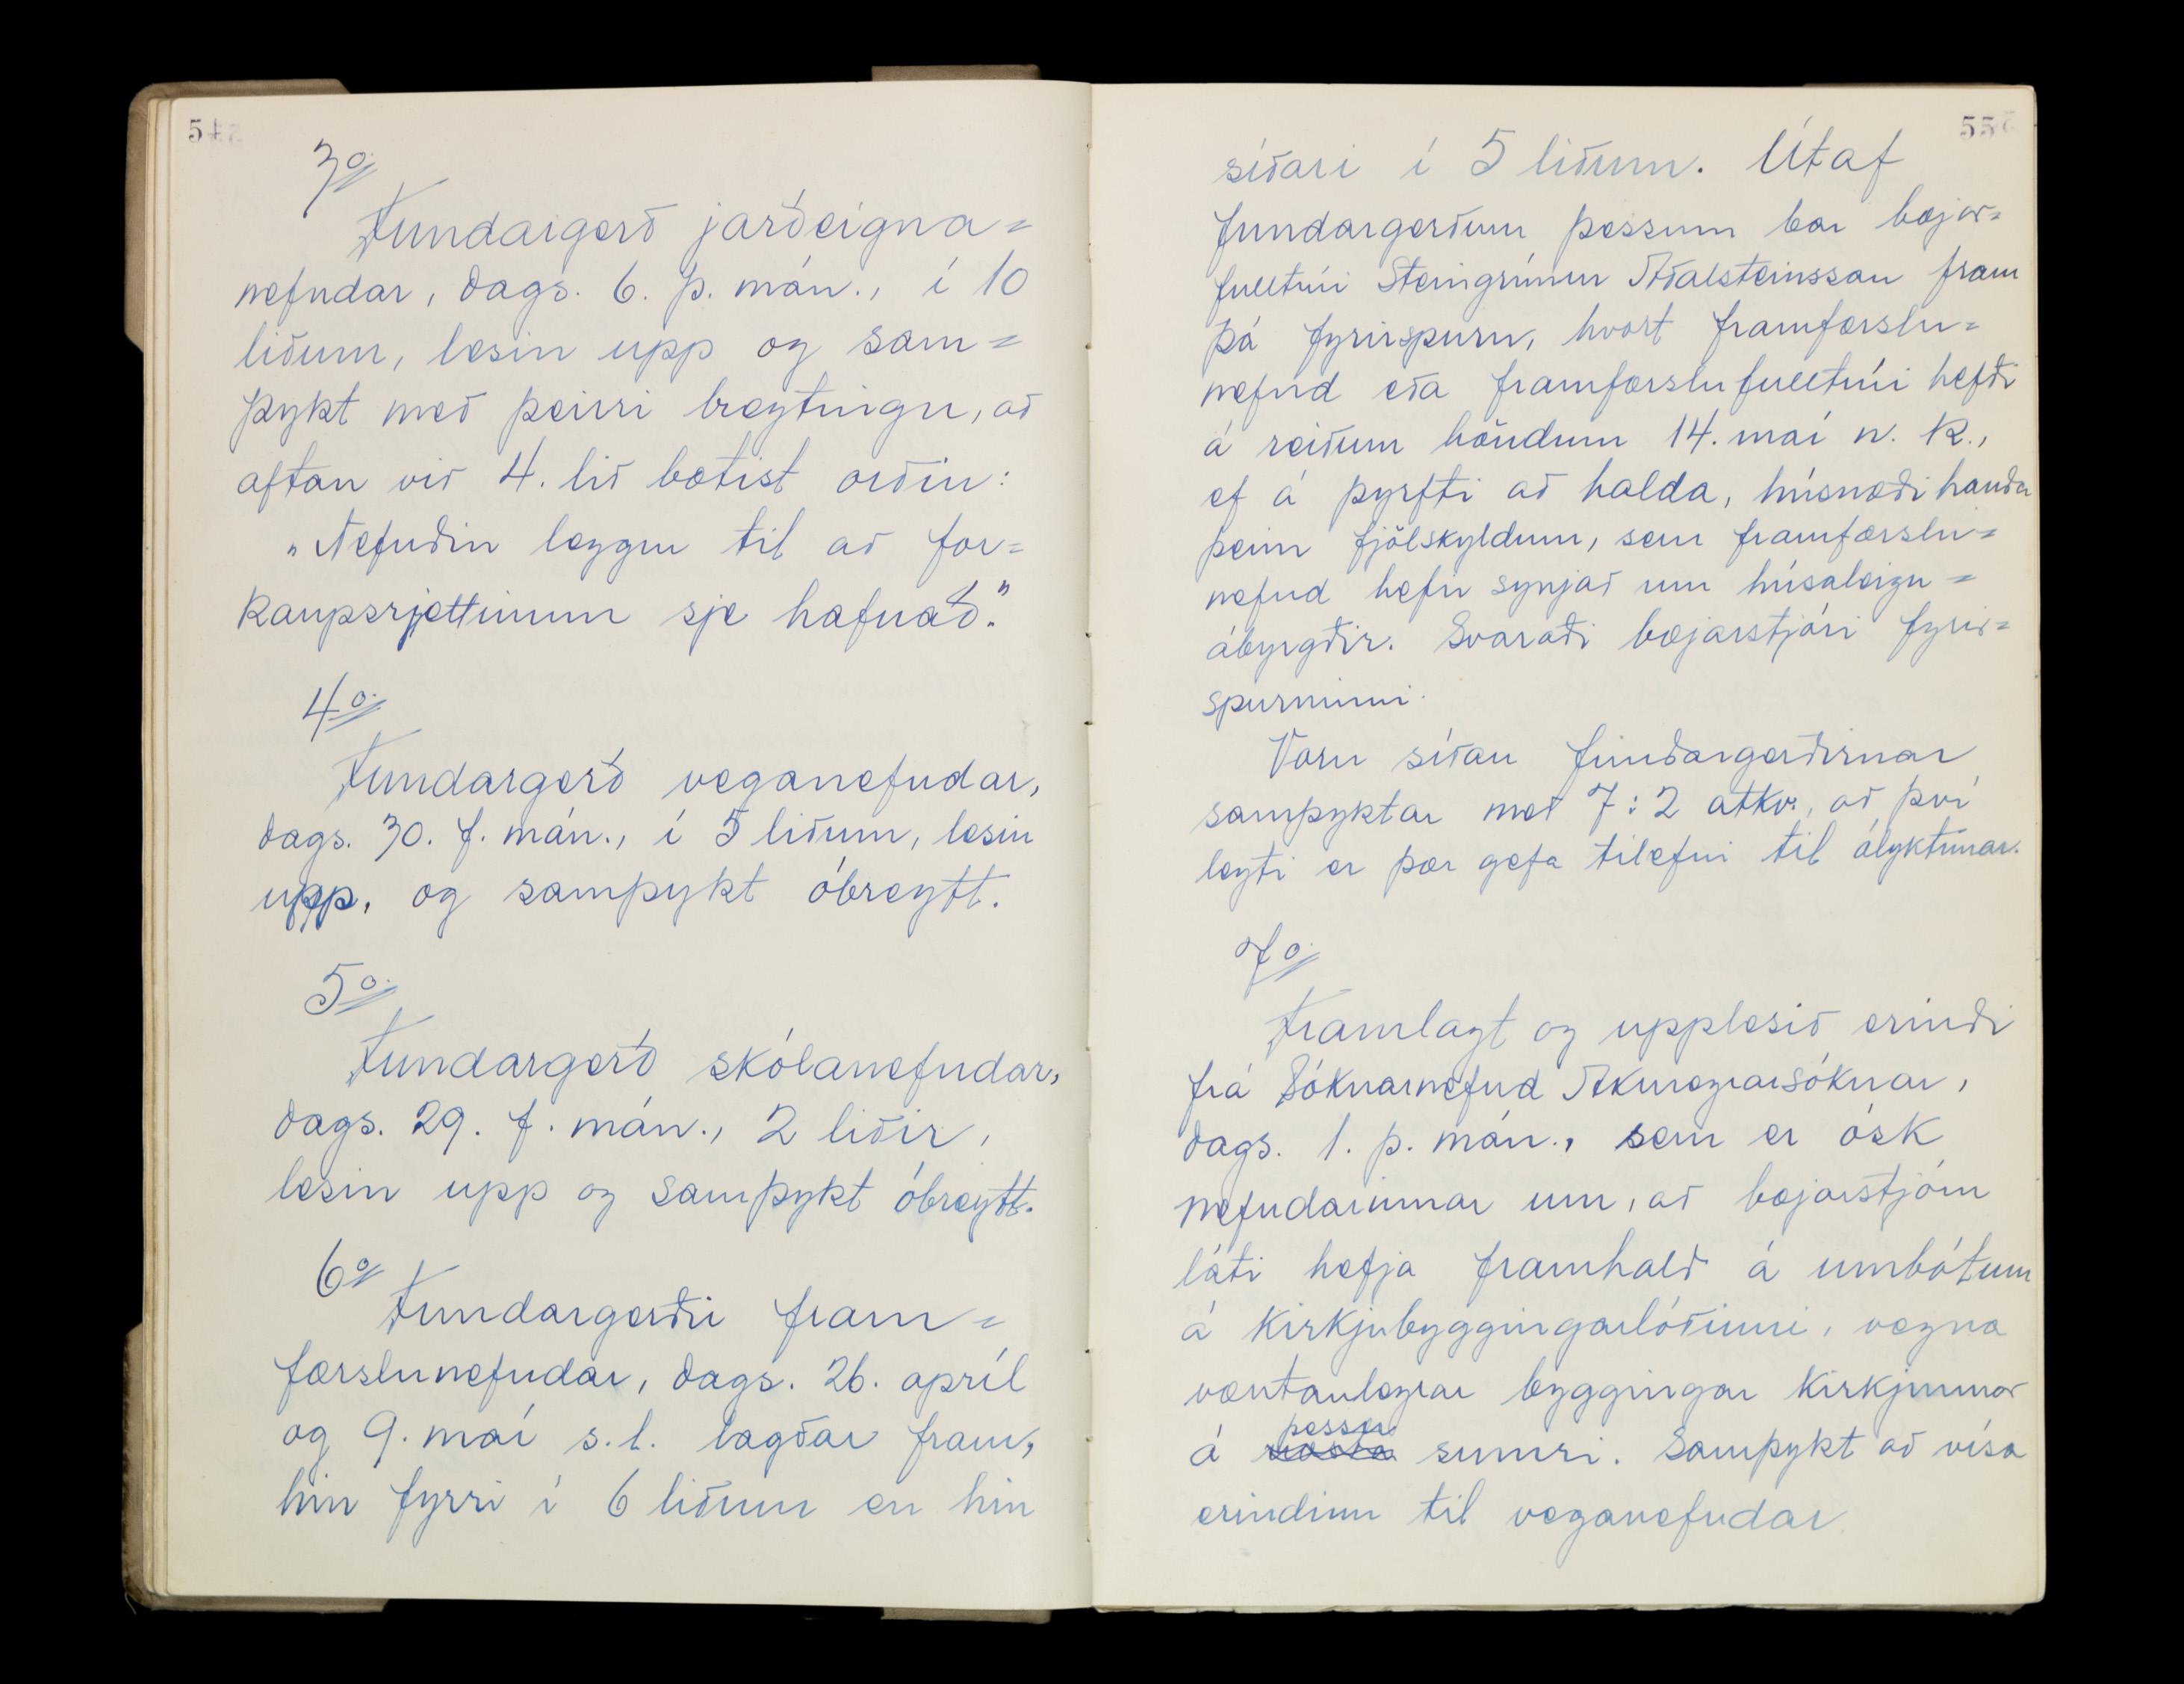 54
3º
Fundargerð jarðeigna=
nefndar, dags. 6. þ. mán., í 10
liðum, lesin upp og sam=
þykt með þeirri breytingu, að
aftan við 4. lið bætist orðin:
„Nefndin leggur til að for=
kaupsrjettinum sje hafnað."
4º
Fundargerð veganefndar,
dags. 30. f. mán., í 5 liðum, lesin
upp, og samþykt óbreytt.
5º
Fundargerð skólanefndar,
dags. 29. f. mán., 2 liðir,
lesin upp og samþykt óbreytt.
6º
Fundargerðir fram=
færslunefndar, dags. 26. apríl
og 9. maí s.l. lagðar fram,
hin fyrri í 6 liðum en hin
55
síðari í 5 liðum. Útaf
fundargerðum þessum bar bæjar=
fulltrúi Steingrímur Aðalsteinsson fram
þá fyrirspurn, hvort framfærslu=
nefnd eða framfærslufulltrúi hefði
á reiðum höndum 14. maí n. k.,
ef á þyrfti að halda, húsnæði handa
þeim fjölskyldum, sem framfærslu=
nefnd hefir synjað um húsaleigu=
ábyrgðir. Svaraði bæjarstjóri fyrir=
spurninni.
Voru síðan fundargerðirnar
samþyktar með 7:2 atkv., að því
leyti er þær gefa tilefni til ályktunar.
7º
Framlagt og upplesið erindi
frá Sóknarnefnd Akureyrarsóknar,
dags. 1. þ. mán., sem er ósk
nefndarinnar um, að bæjarstjórn
láti hefja framhald á umbótum
á kirkjubyggingarlóðinni, vegna
væntanlegrar byggingar kirkjunnar
þessu
á næsta sumri. Samþykt að vísa
erindinu til veganefndar.